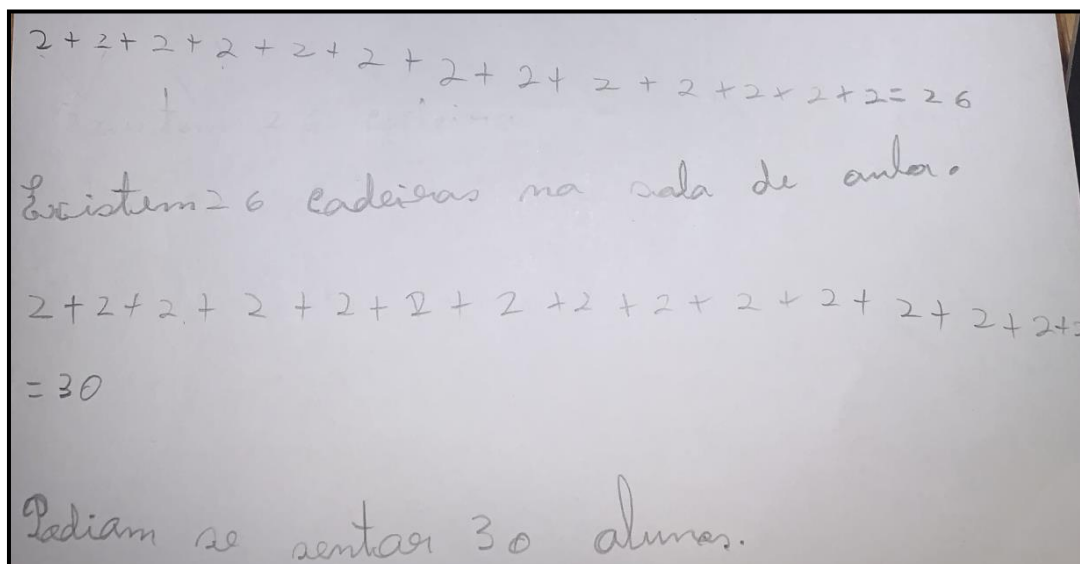 2 + 2 + 2 + 2 + 2 + 2 + 2 + 2 + 2 + 2 + 2 + 2 + 2 = 26
Existem 26 cadeiras na sala de aula.
2 + 2 + 2 + 2 + 2 + 2 + 2 + 2 + 2 + 2 + 2 + 2 + 2 + 2 + 2
= 30
Podiam se sentar 30 alunos.